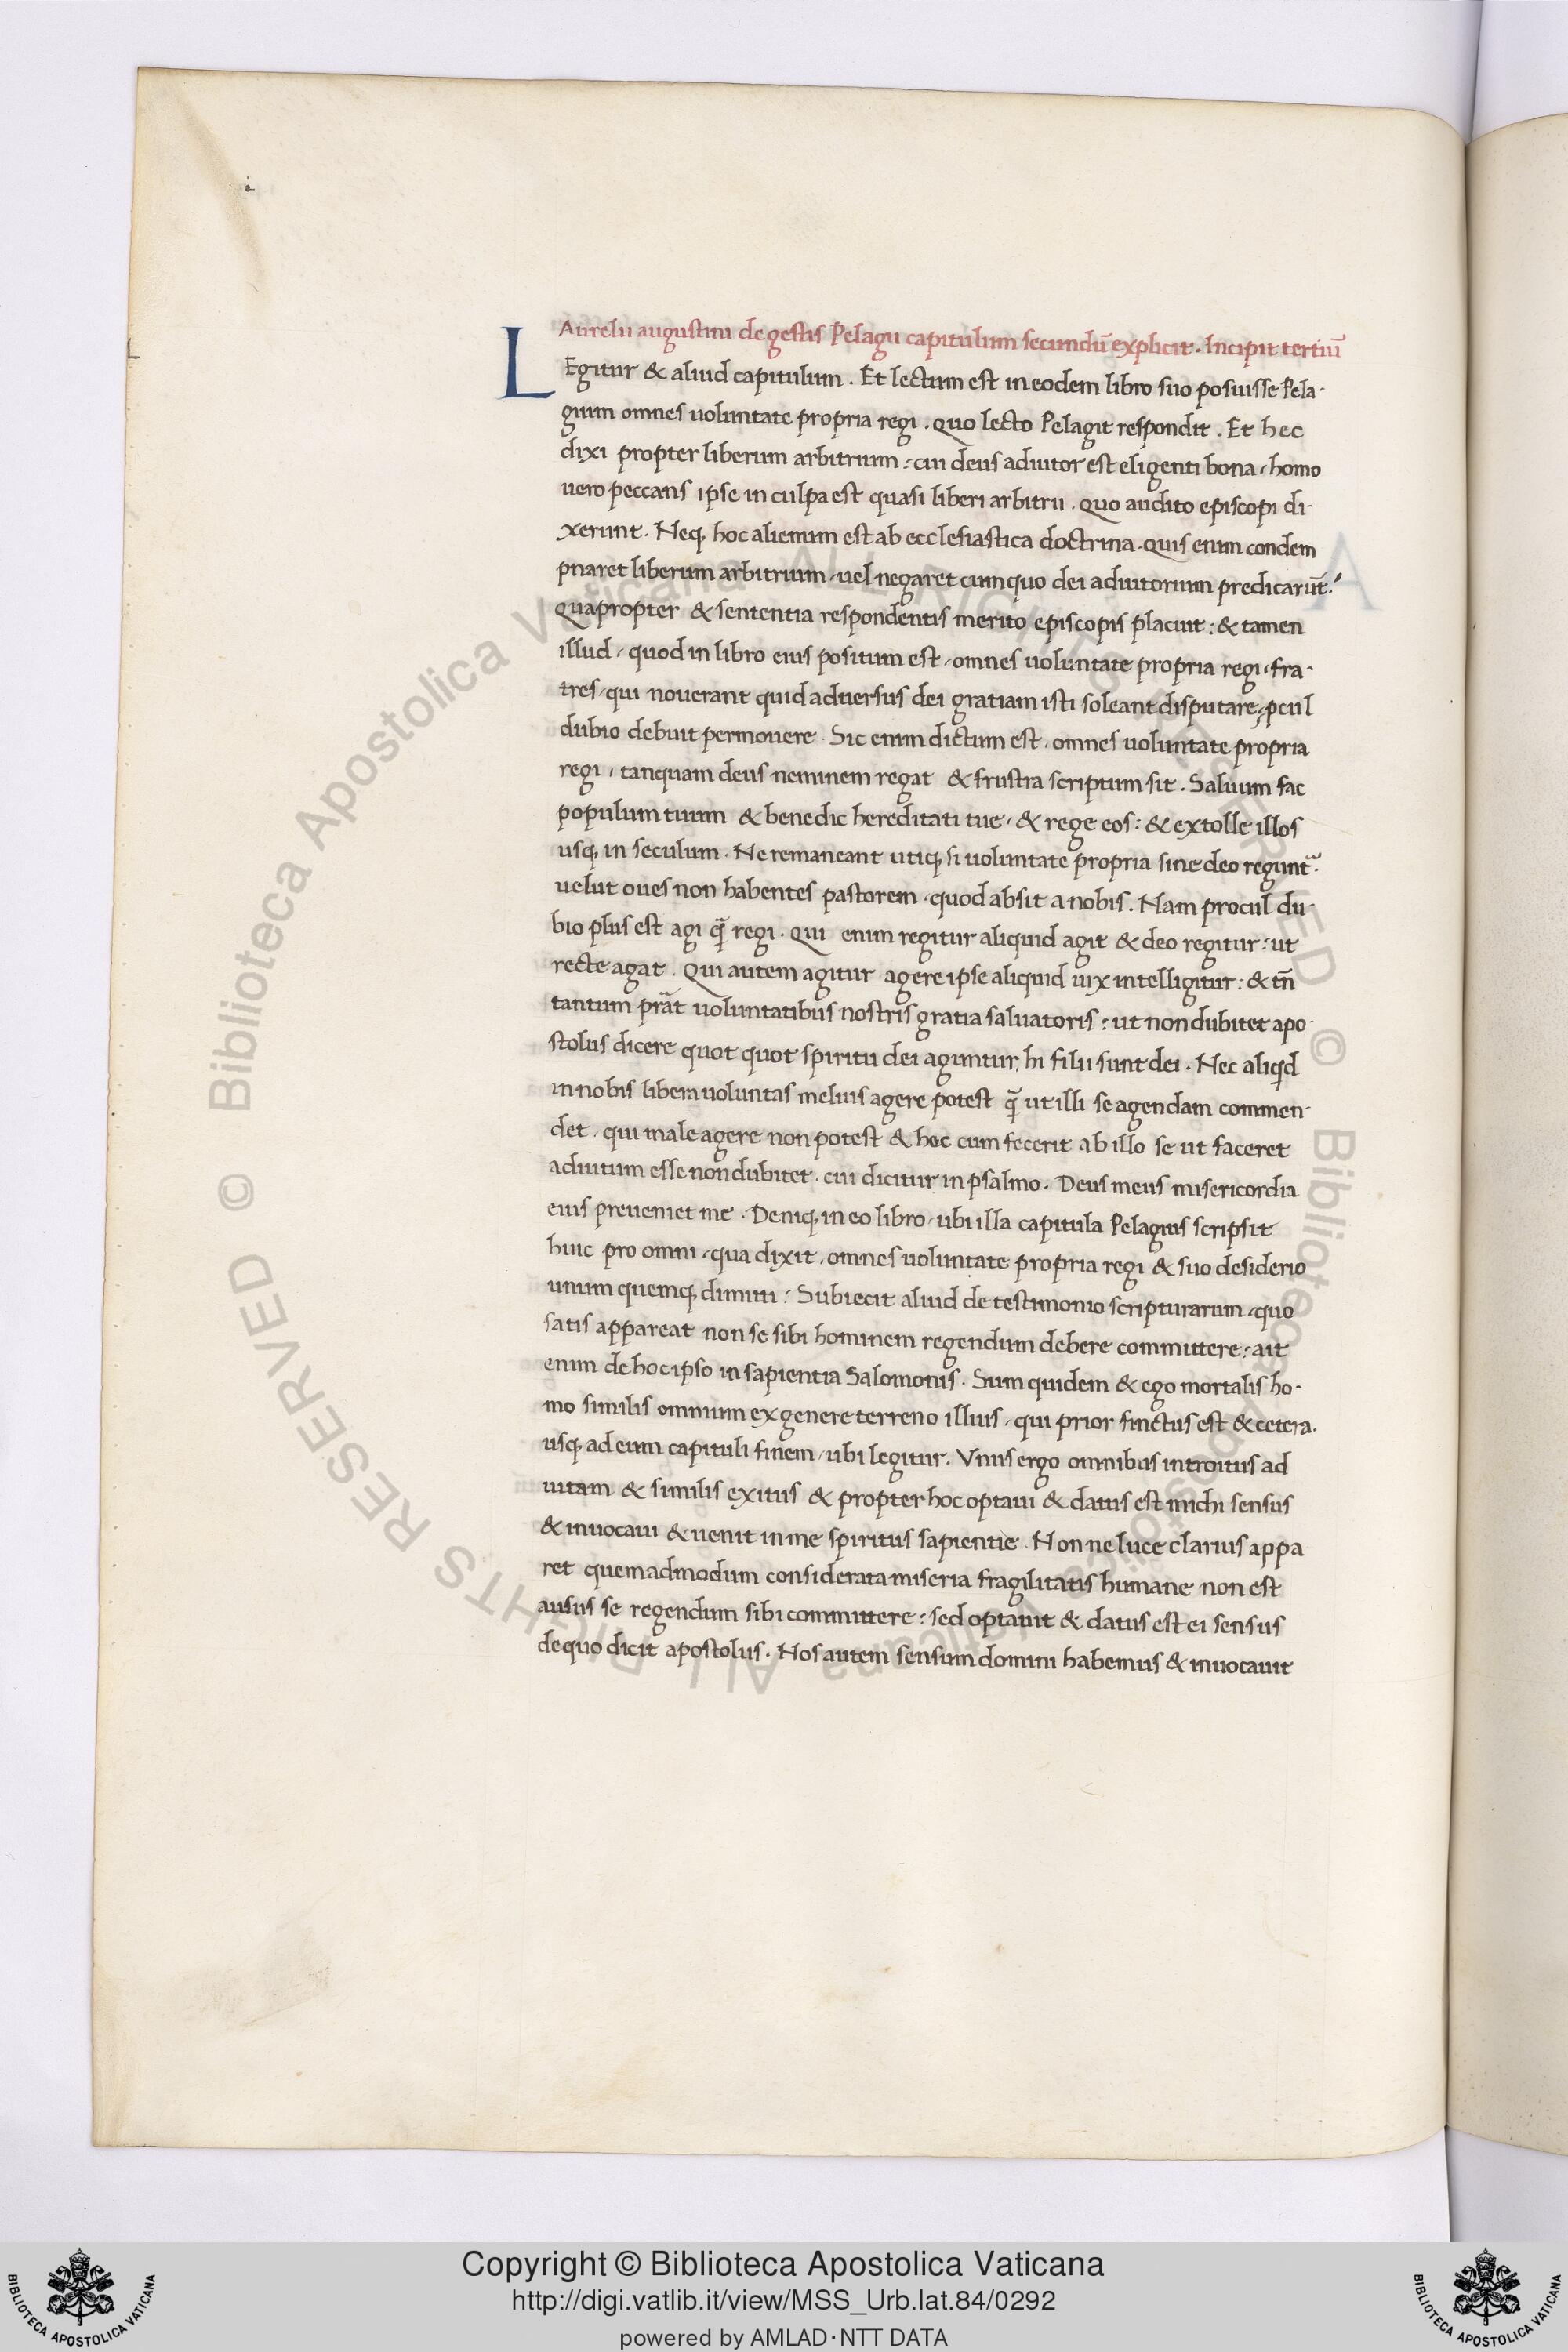 Aurelii augustini de gestis Pelagii capitulum secundū explicit. Incipit tertiū
LEgitur & aliud capitulum. Et lectum est in eodem libro suo posuisse Pela-
gium omnes uoluntate propria regi. quo lecto Pelagiť respondit. Et hec
dixi propter liberum arbitrium: cui deus adiutor est eligenti bona, homo
uero peccans ipse in culpa est quasi liberi arbitrii. quo audito episcopi di-
xerunt. Neq; hoc alienum est ab ecclesiastica doctrina. quis enim condem
pnaret liberum arbitrium, uel negaret cum quo dei adiutorium predicarūt?
quapropter & sententia respondentis merito episcopis placuit: & tamen
illud, quod in libro eius positum est, omnes uoluntate propria regi, fra-
tres, qui nouerant quid aduersus dei gratiam isti soleant disputare, ꝓcul
dubio debuit permouere. Sic enim dictum est, omnes uoluntate propria
regi, tanquam deus neminem regat & frustra scriptum sit. Saluum fac
populum tuum & benedic hereditati tue, & rege eos: & extolle illos
usq; in seculum. Ne remaneant utiq; si uoluntate propria sine deo regunt᷑.
uelut oues non habentes pastorem, quod absit a nobis. Nam procul du-
bio plus est agi q̃ regi. qui enim regitur aliquid agit & deo regitur: ut
recte agat. Qui autem agitur agere ipse aliquid uix intelligitur: & tñ
tantum prãt uoluntatibus nostris gratia saluatoris: ut non dubitet apo-
stolus dicere quot quot spiritu dei aguntur, hi filii sunt dei. Nec aliqd
in nobis libera uoluntas melius agere potest q̃ ut illi se agendam commen-
det, qui male agere non potest & hoc cum fecerit ab illo se ut faceret
adiutum esse non dubitet, cui dicitur in psalmo. Deus meus misericordia
eius preueniet me. Deniq; in eo libro, ubi illa capitula Pelagius scripsit
huic pro omni, qua dixit, omnes uoluntate propria regi & suo desiderio
unum quemq; dimitti: Subiecit aliud de testimonio scripturarum, quo
satis appareat non se sibi hominem regendum debere committere: ait
enim de hoc ipso in sapientia Salomonis. Sum quidem & ego mortalis ho-
mo similis omnium ex genere terreno illius, qui prior finctus est & cetera.
usq; ad eum capituli finem, ubi legitur. Vnus ergo omnibus introitus ad
uitam & similis exitus & propter hoc optaui & datus est michi sensus
& inuocaui & uenit in me spiritus sapientie. Non ne luce clarius appa
ret quemadmodum considerata miseria fragilitatis humane non est
ausus se regendum sibi committere: sed optauit & datus est ei sensus
de quo dicit apostolus. Nos autem sensum domini habemus & inuocauit
© Biblioteca Apostolica Vaticana ALL RIGHTS RESERVED © Biblioteca Apostolica Vaticana ALL RIGHTS RESERVED
Copyright © Biblioteca Apostolica Vaticana
http://digi.vatlib.it/view/MSS_Urb.lat.84/0292
powered by AMLAD·NTT DATA
BIBLIOTECA APOSTOLICA VATICANA
BIBLIOTECA APOSTOLICA VATICANA